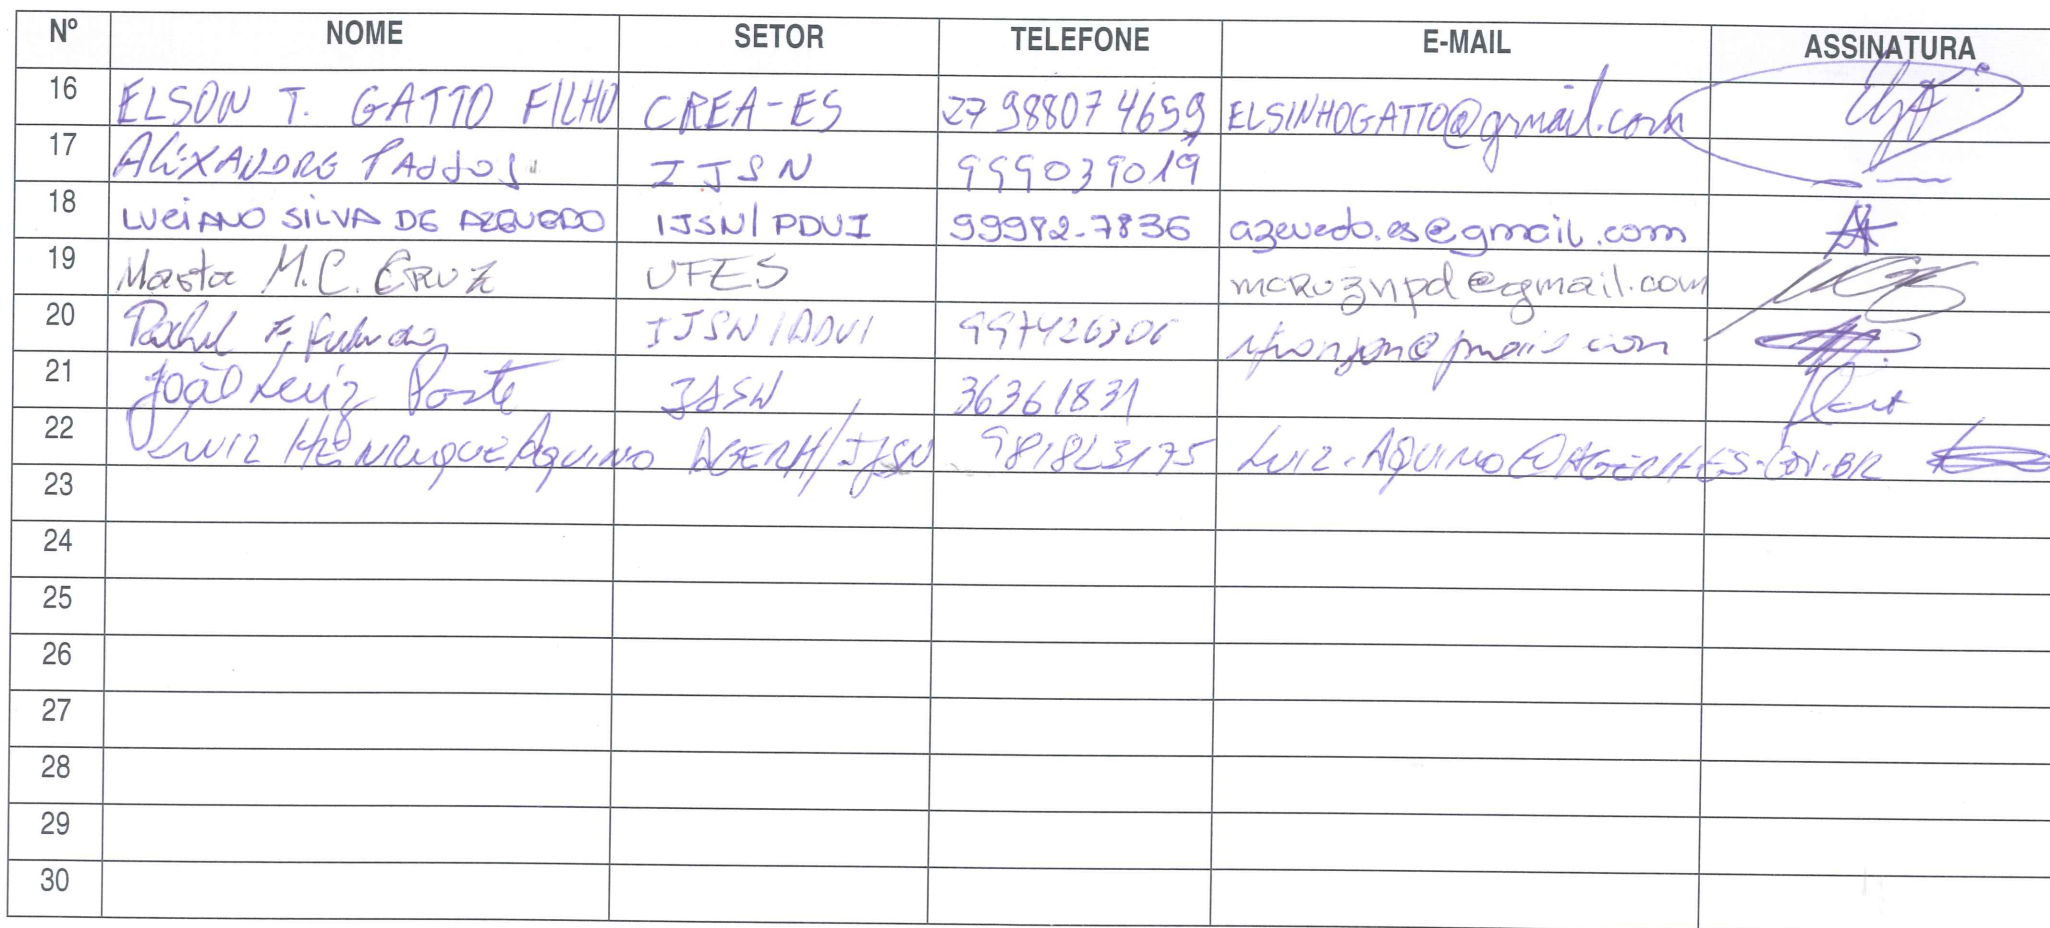 Nº NOME SETOR TELEFONE E-MAIL ASSINATURA
16 ELSON T. GATTO FILHO CREA-ES 27 988074659 ELSINHOGATTO@gmail.com
17 ALEXANDRE PASSOS IJSN 999039019
18 LUCIANO SILVA DE AZEVEDO IJSN/PDUI 99982-7836 azevedo.es@gmail.com
19 Marta M.C. CRUZ UFES mcruznpd@gmail.com
20 IJSN/PDUI 997426306
21 João Luiz Paste IJSN 36361831
22 LUIZ HENRIQUE AQUINO AGERH/IJSN 981823175 LUIZ.AQUINO@AGERH.ES.GOV.BR
23
24
25
26
27
28
29
30